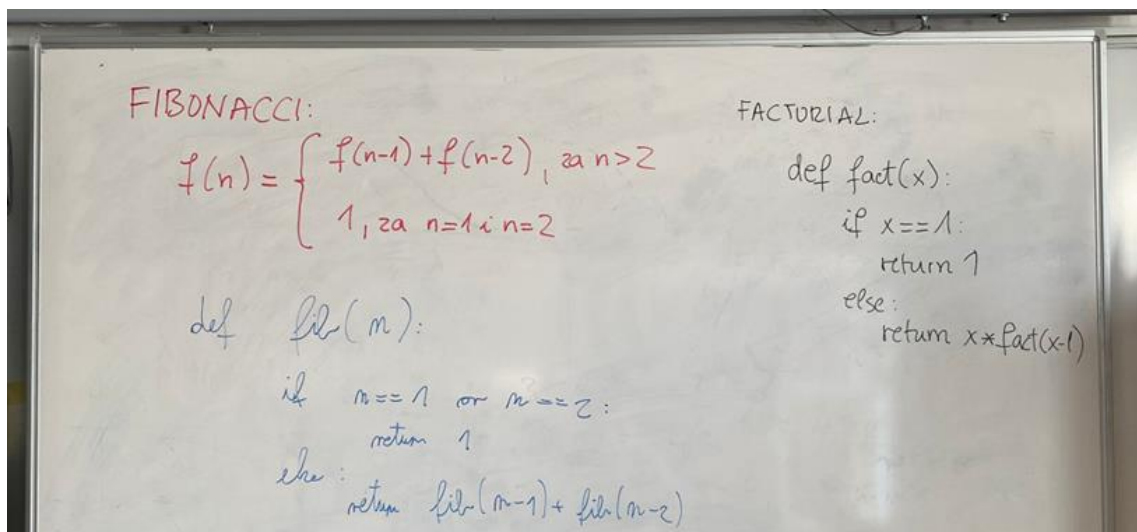 FIBONACCI:
f(n) = { f(n-1) + f(n-2), za n>2
1, za n=1 i n=2
def fib(n):
if n==1 or n==2:
return 1
else:
return fib(n-1)+ fib(n-2)
FACTORIAL:
def fact(x):
if x==1:
return 1
else:
return x*fact(x-1)